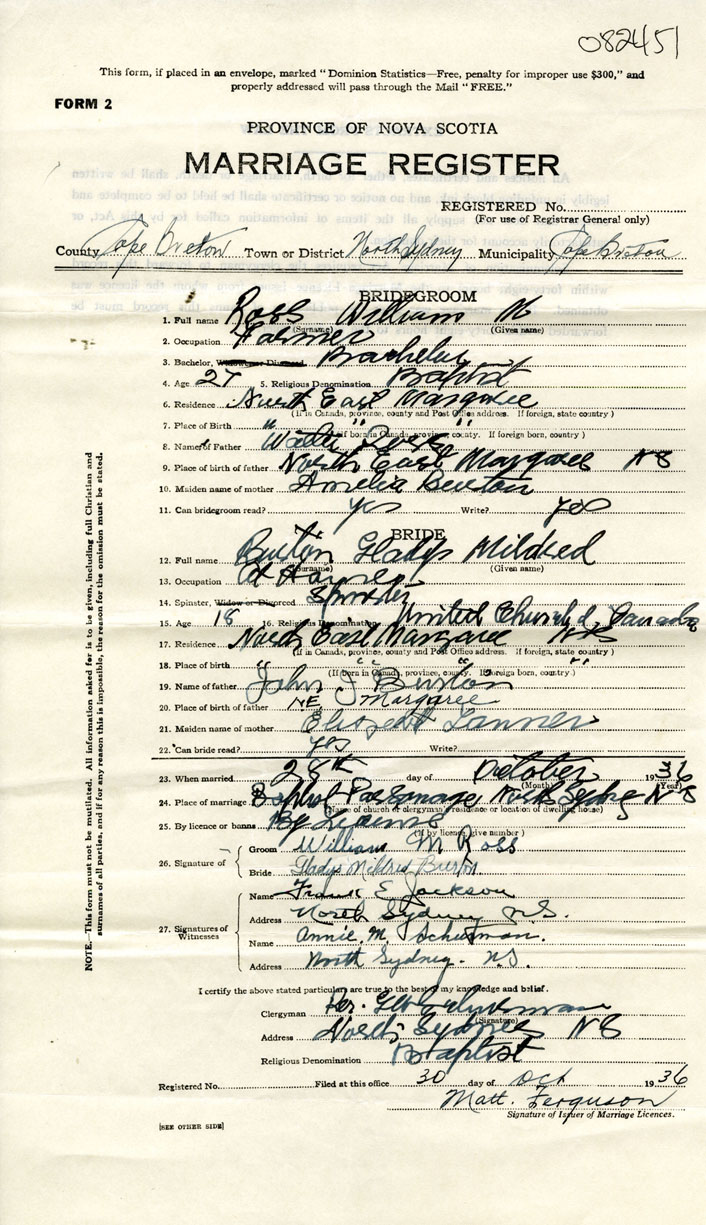 082451
This form, if placed in an envelope, marked "Dominion Statistics—Free, penalty for improper use $300," and
properly addressed will pass through the Mail "FREE."
FORM 2
PROVINCE OF NOVA SCOTIA
MARRIAGE REGISTER
REGISTERED No.
(For use of Registrar General only)
County Cape Breton Town or District North Sydney Municipality Cape Breton
BRIDEGROOM
1. Full name Ross William M
(Surname) (Given name)
2. Occupation Farmer
3. Bachelor, Widower or Divorced Bachelor
4. Age 27 5. Religious Denomination Baptist
6. Residence North East Margaree
(If in Canada, province, county and Post Office address. If foreign, state country)
7. Place of Birth " " "
(If born in Canada, province, county. If foreign born, country)
8. Name of Father Ross
9. Place of birth of father North East Margaree NS
10. Maiden name of mother Amelia Burton
11. Can bridegroom read? yes Write? yes
BRIDE
12. Full name Burton Gladys Mildred
(Surname) (Given name)
13. Occupation At Home
14. Spinster, Widow or Divorced Spinster
15. Age 18 16. Religious Denomination United Church of Canada
17. Residence North East Margaree NS
(If in Canada, province, county and Post Office address. If foreign, state country)
18. Place of birth " " " "
(If born in Canada, province, county. If foreign born, country)
19. Name of father John J Burton
20. Place of birth of father NE Margaree
21. Maiden name of mother Elizabeth
22. Can bride read? yes Write?
23. When married 28th day of October 1936
(Month) (Year)
24. Place of marriage Baptist Parsonage North Sydney NS
(Name of church or clergyman's residence or location of dwelling house)
25. By licence or banns By License
(If by license, give number)
26. Signature of
Groom William M Ross
Bride Gladys Mildred Burton
27. Signatures of Witnesses
Name Frank E Jackson
Address North Sydney N.S.
Name Annie M. Schurman.
Address North Sydney. N.S.
I certify the above stated particulars are true to the best of my knowledge and belief.
Clergyman
(Signature)
Address North Sydney NS
Religious Denomination Baptist
Registered No. Filed at this office 30 day of Oct 1936
Matt. Ferguson
Signature of Issuer of Marriage Licences.
[SEE OTHER SIDE]
NOTE.—This form must not be mutilated. All information asked for is to be given, including full Christian and
surnames of all parties, and if for any reason this is impossible, the reason for the omission must be stated.